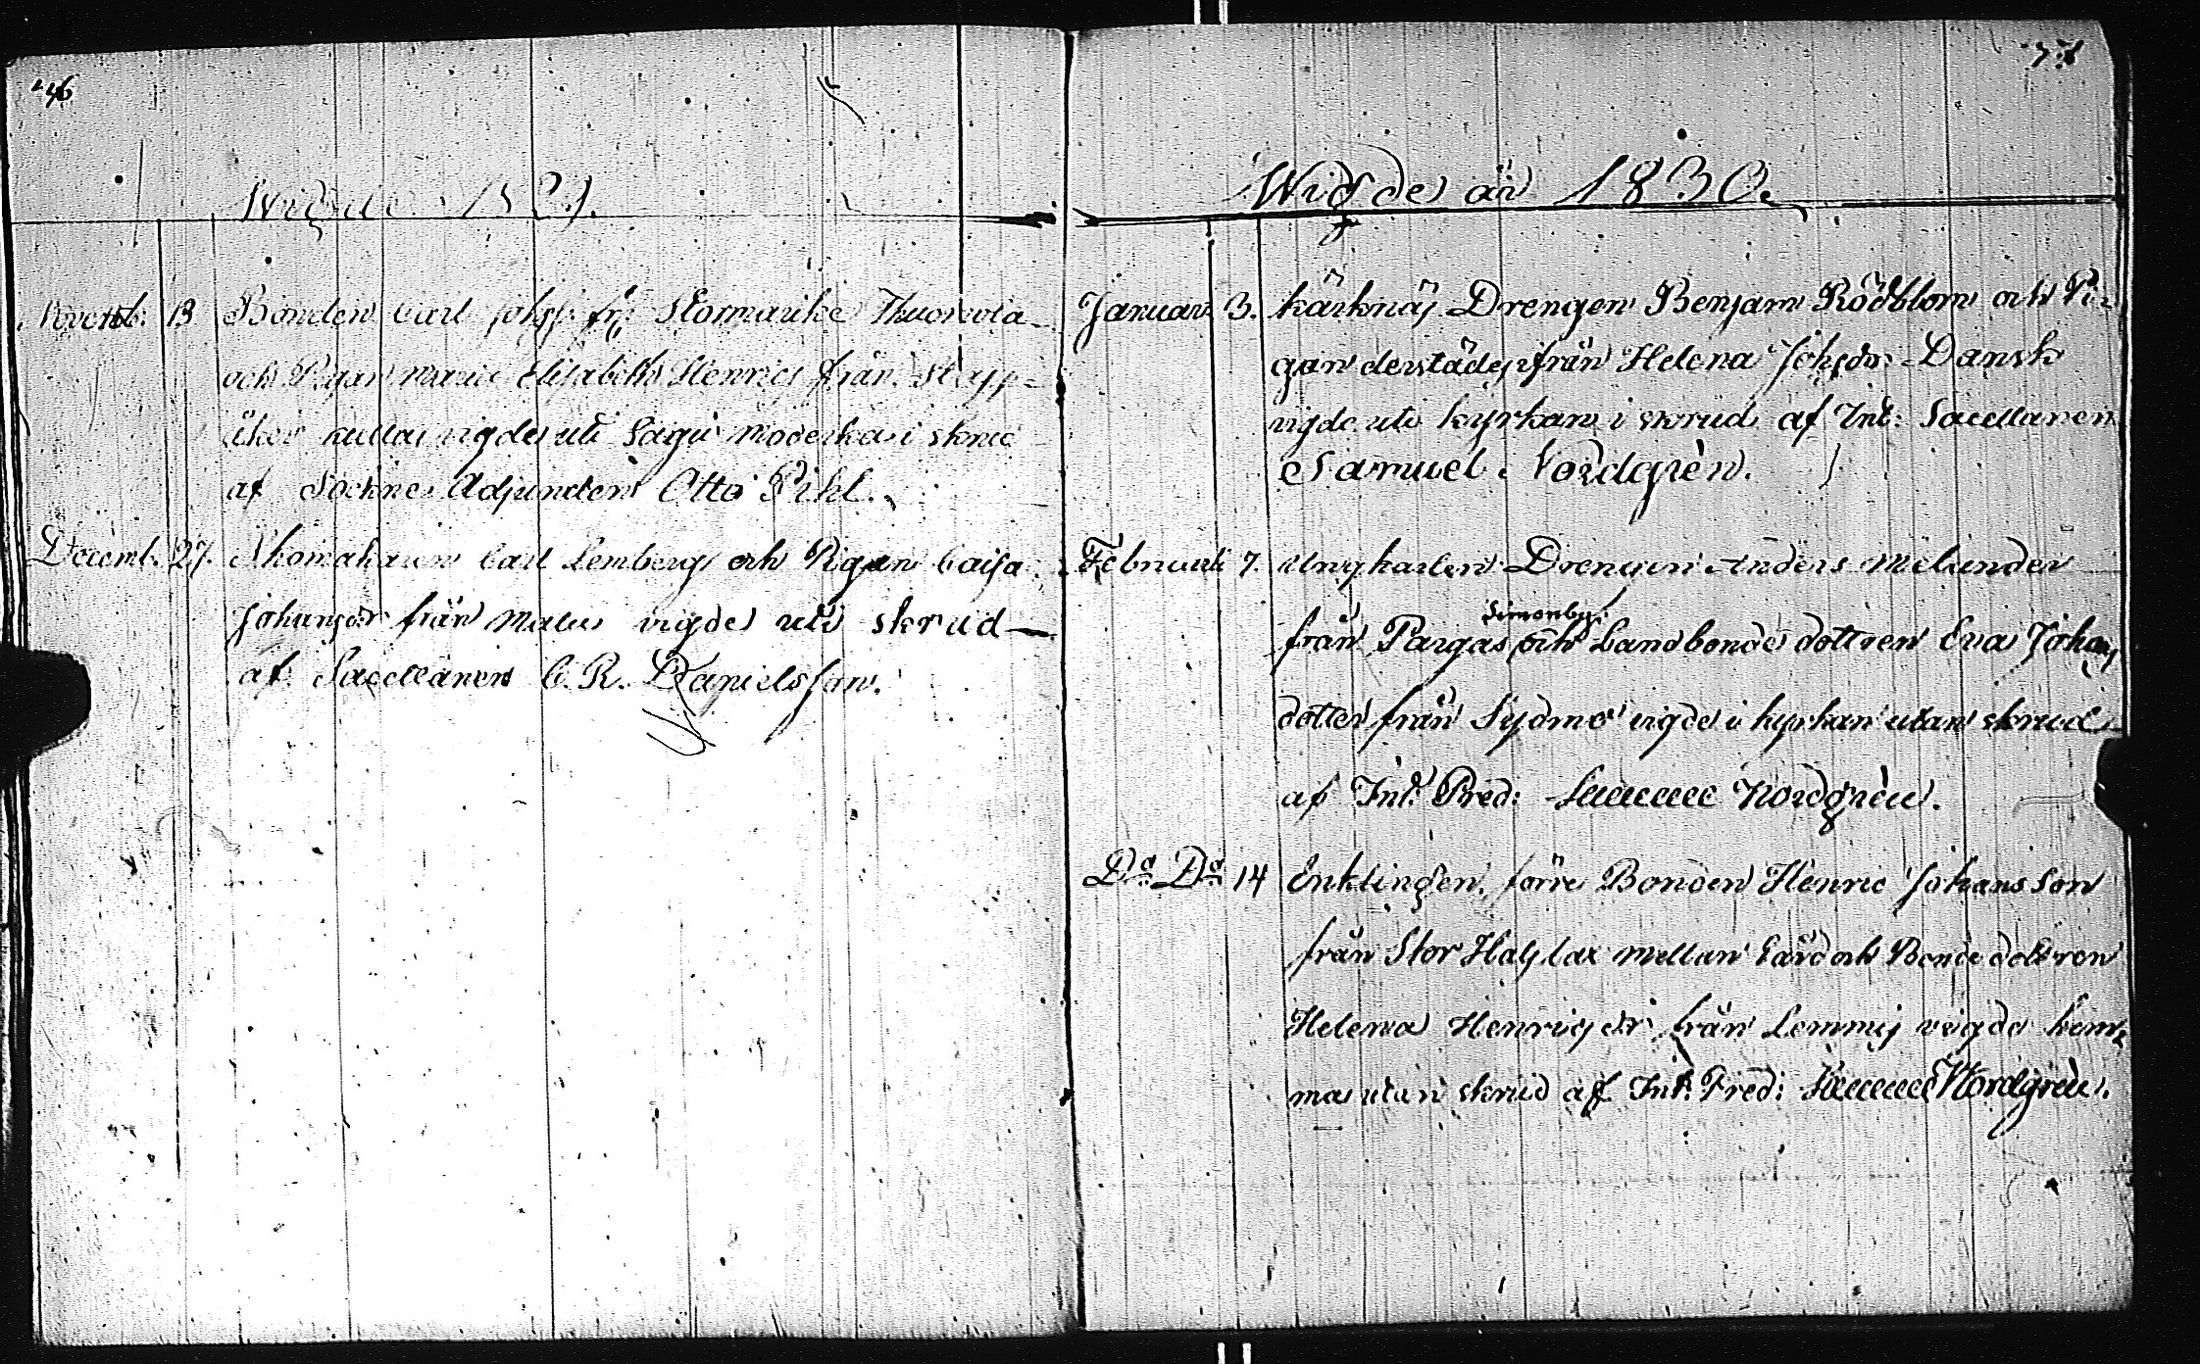 46
Wigde 1829.
Novemb: 13 Bonden Carl Johss: frn Stormarike Thuorola
och Pigan Maria Elisabeth Henrics från Stapp=
åker kulla vigde uti Sagu Moderka i skrud
af Sockne Adjuncten Otto Pihl.
Decemb. 27. Skomakaren Carl Lemberg och Pigan Caisa
Johansdr från Malm vigde uti skrud —
af Sacellanen C. R. Danielsson.
Wigde år 1830.
Januari 3. Kärknäs Drengen Benjam Rödblom och Pi=
gan derstädes ifrån Helena Johsdr Dansk
vigde uti kyrkan i skrud af Int: Sacellanen
Samuel Nordgrèn.
Februari 7. Ungkarlen Drengen Anders Melunder
Simonby:
från Pargas och Landbonde dottren Eva Johans
dotter från Sydmo vigde i kyrkan utan skrud
af Int: Pred: Samuel Nordgrèn.
Do Do 14 Enklingen, förre Bonden Henric Johansson
från Stor Haslax Mellan Gård och Bonde dottren
Helena Henricsdr från Lemmis vigde hem=
ma utan skrud af Int: Pred: Samuel Nordgrèn.